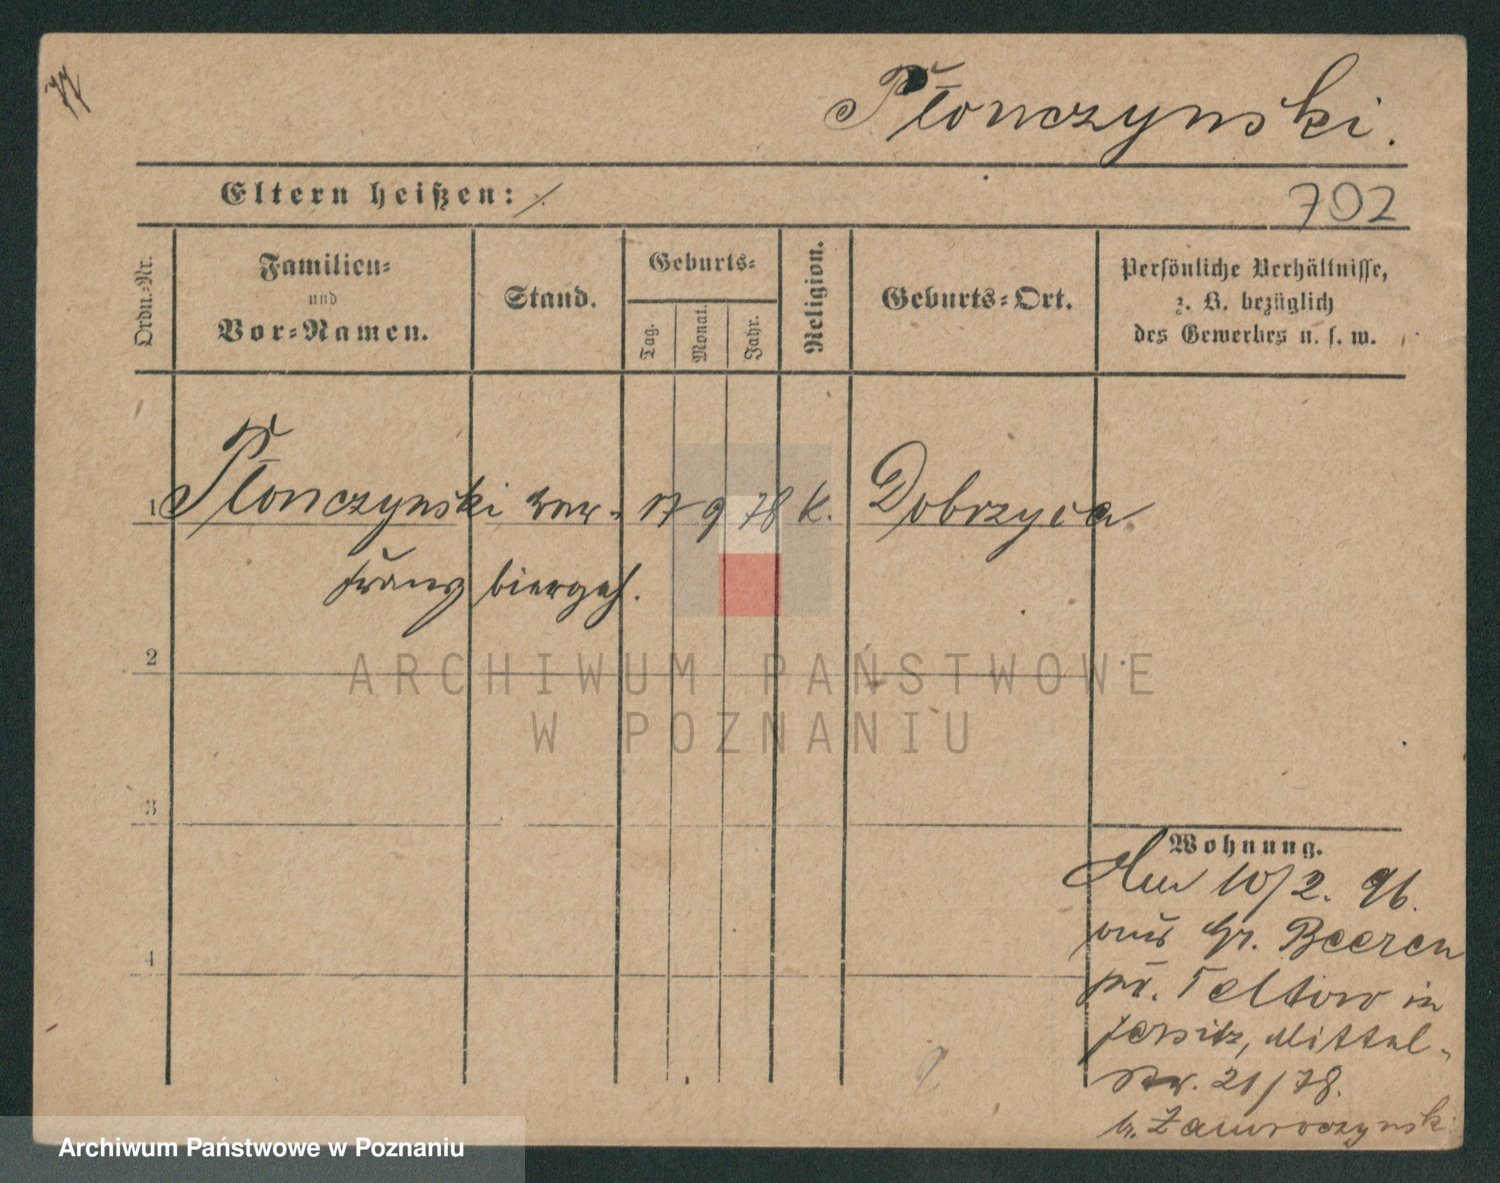 Płonczynski.
Eltern heißen: ⁒
702
Ordn.-Nr.
Familien-
und
Vor-Namen.
Stand.
Geburts-
Tag.
Monat.
Jahr.
Religion.
Geburts-Ort.
Persönliche Verhältnisse,
z. B. bezüglich
des Gewerbes u. s. w.
1 Płonczynski 17 9 78 k. Dobrzyca
Franz
2
3
4
ARCHIWUM PAŃSTWOWE
W POZNANIU
Wohnung.
Am 10/2. 96.
aus Gr. Beeren
Kr. Teltow in
Jersitz, Mittel-
str. 21/78.
b. Zaworoczynski
Archiwum Państwowe w Poznaniu